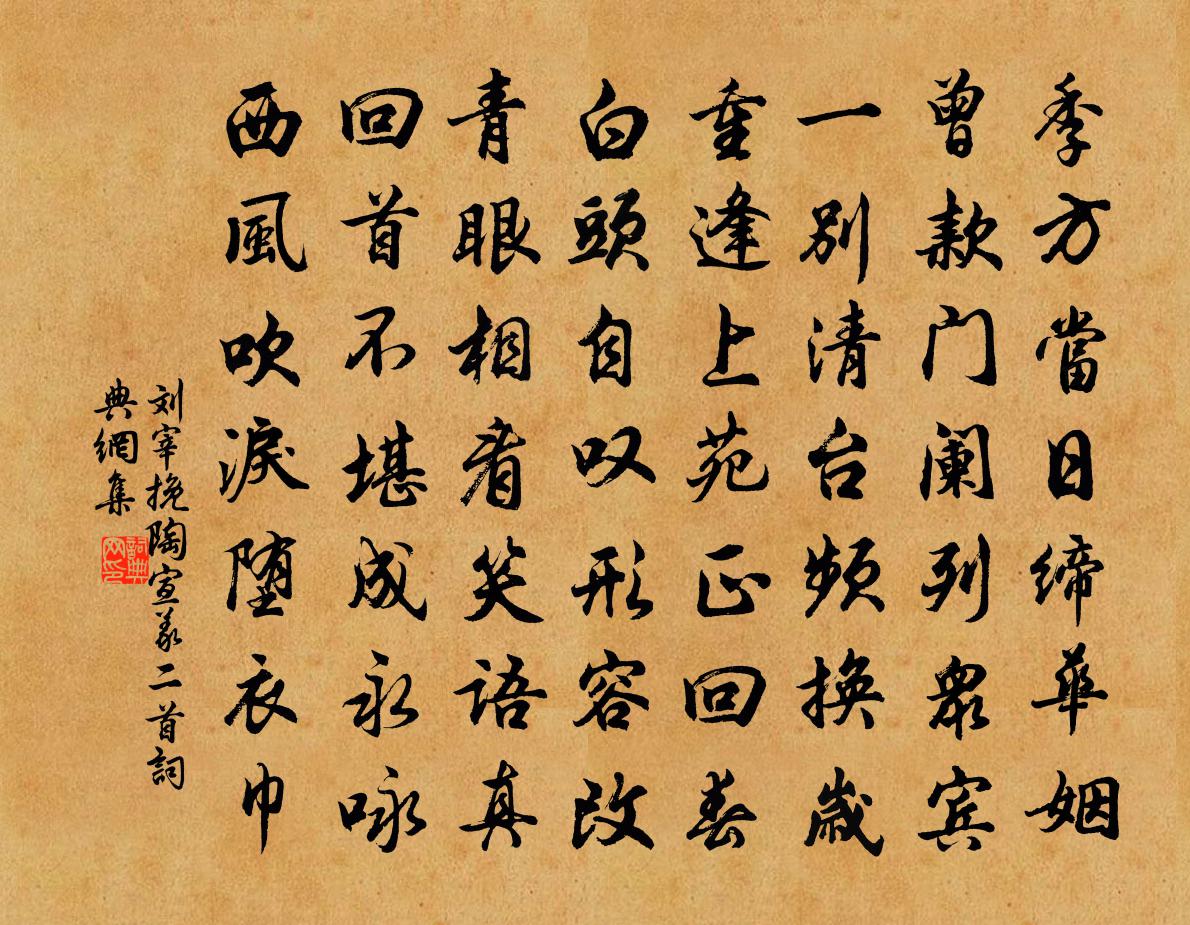 季方當日締華姻
曾款门阑列衆宾
一别清台频换歲
重逢上苑正回春
白頭自叹形容改
青眼相看笑语真
回首不堪成永咏
西風吹淚堕衣巾
刘宰挽陶宣義二首詞
典網集
詞典
网印